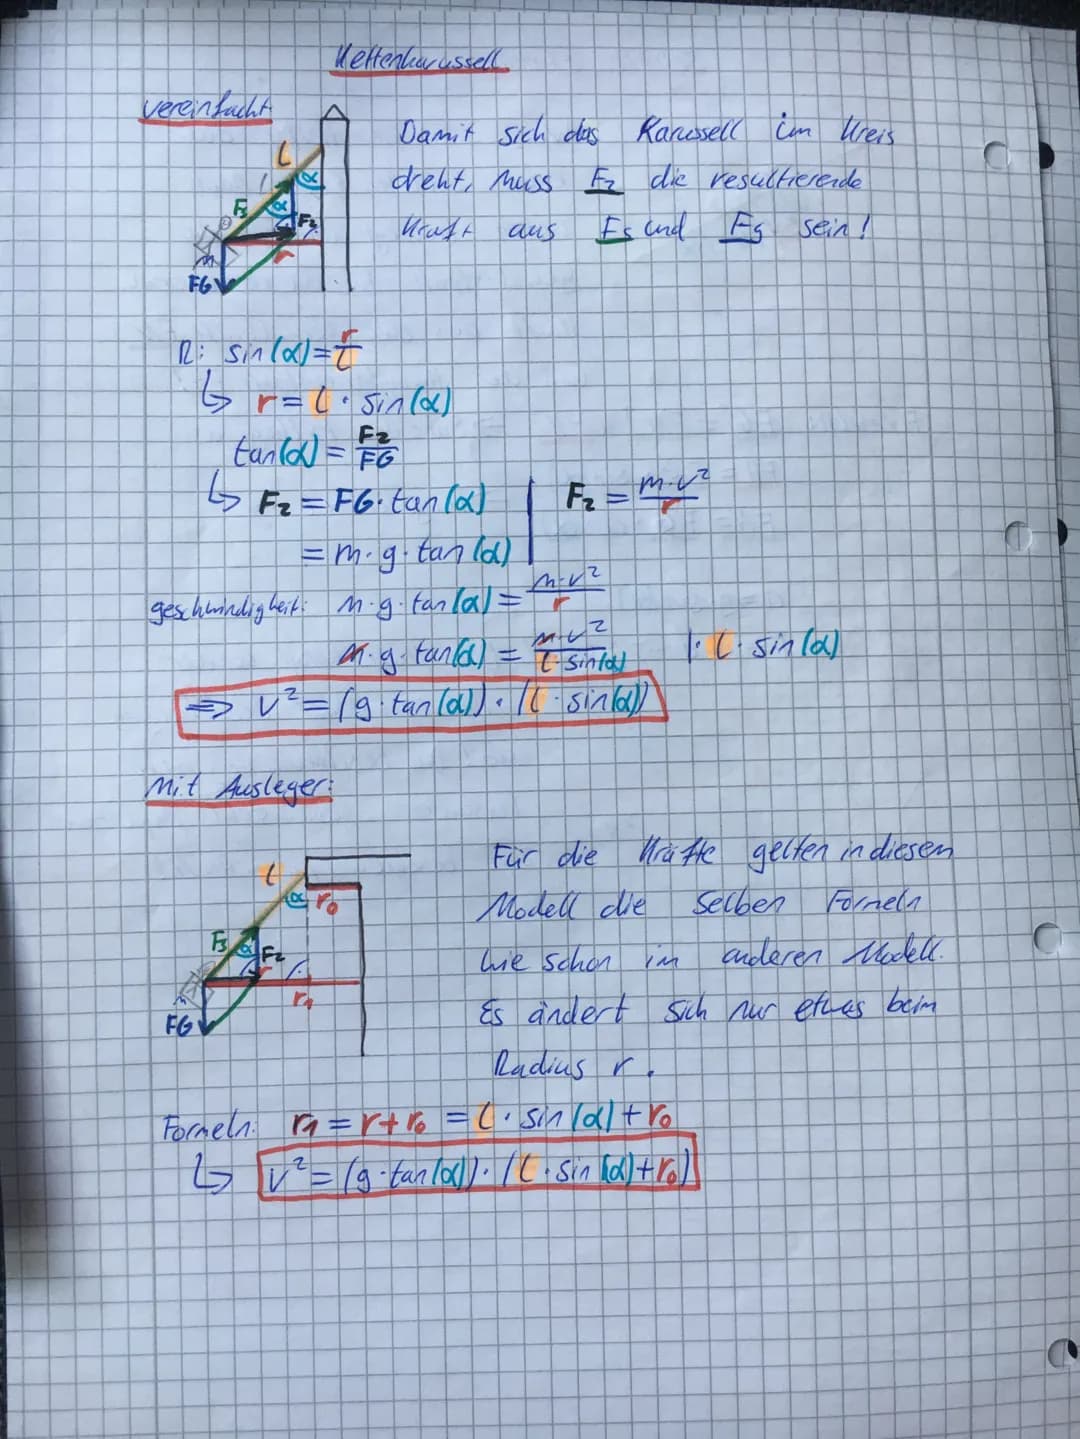 Kettenkarussell
vereinfacht
Damit sich das Karussell im Kreis
dreht, muss Fz die resultierende
Kraft aus Fs und Fg sein!
l
α
Fs
α
Fz
r
m
FG
R: sin(α)=r/l
↳ r = l · sin(α)
tan(α) = Fz/FG
↳ Fz = FG · tan(α) | Fz = m·v²/r
= m · g · tan(α)
geschwindigkeit: m · g · tan(α) = m·v²/r
m · g · tan(α) = m·v²/l·sin(α) | · l · sin(α)
⇒ v² = (g · tan(α)) · (l · sin(α))
Mit Ausleger:
l
α
r₀
Fs
α
Fz
r
r₁
m
FG
Für die Kräfte gelten in diesem
Modell die selben Formeln
wie schon im anderen Modell.
Es ändert sich nur etwas beim
Radius r.
Formeln: r₁ = r + r₀ = l · sin(α) + r₀
↳ v² = (g · tan(α)) · (l · sin(α) + r₀)